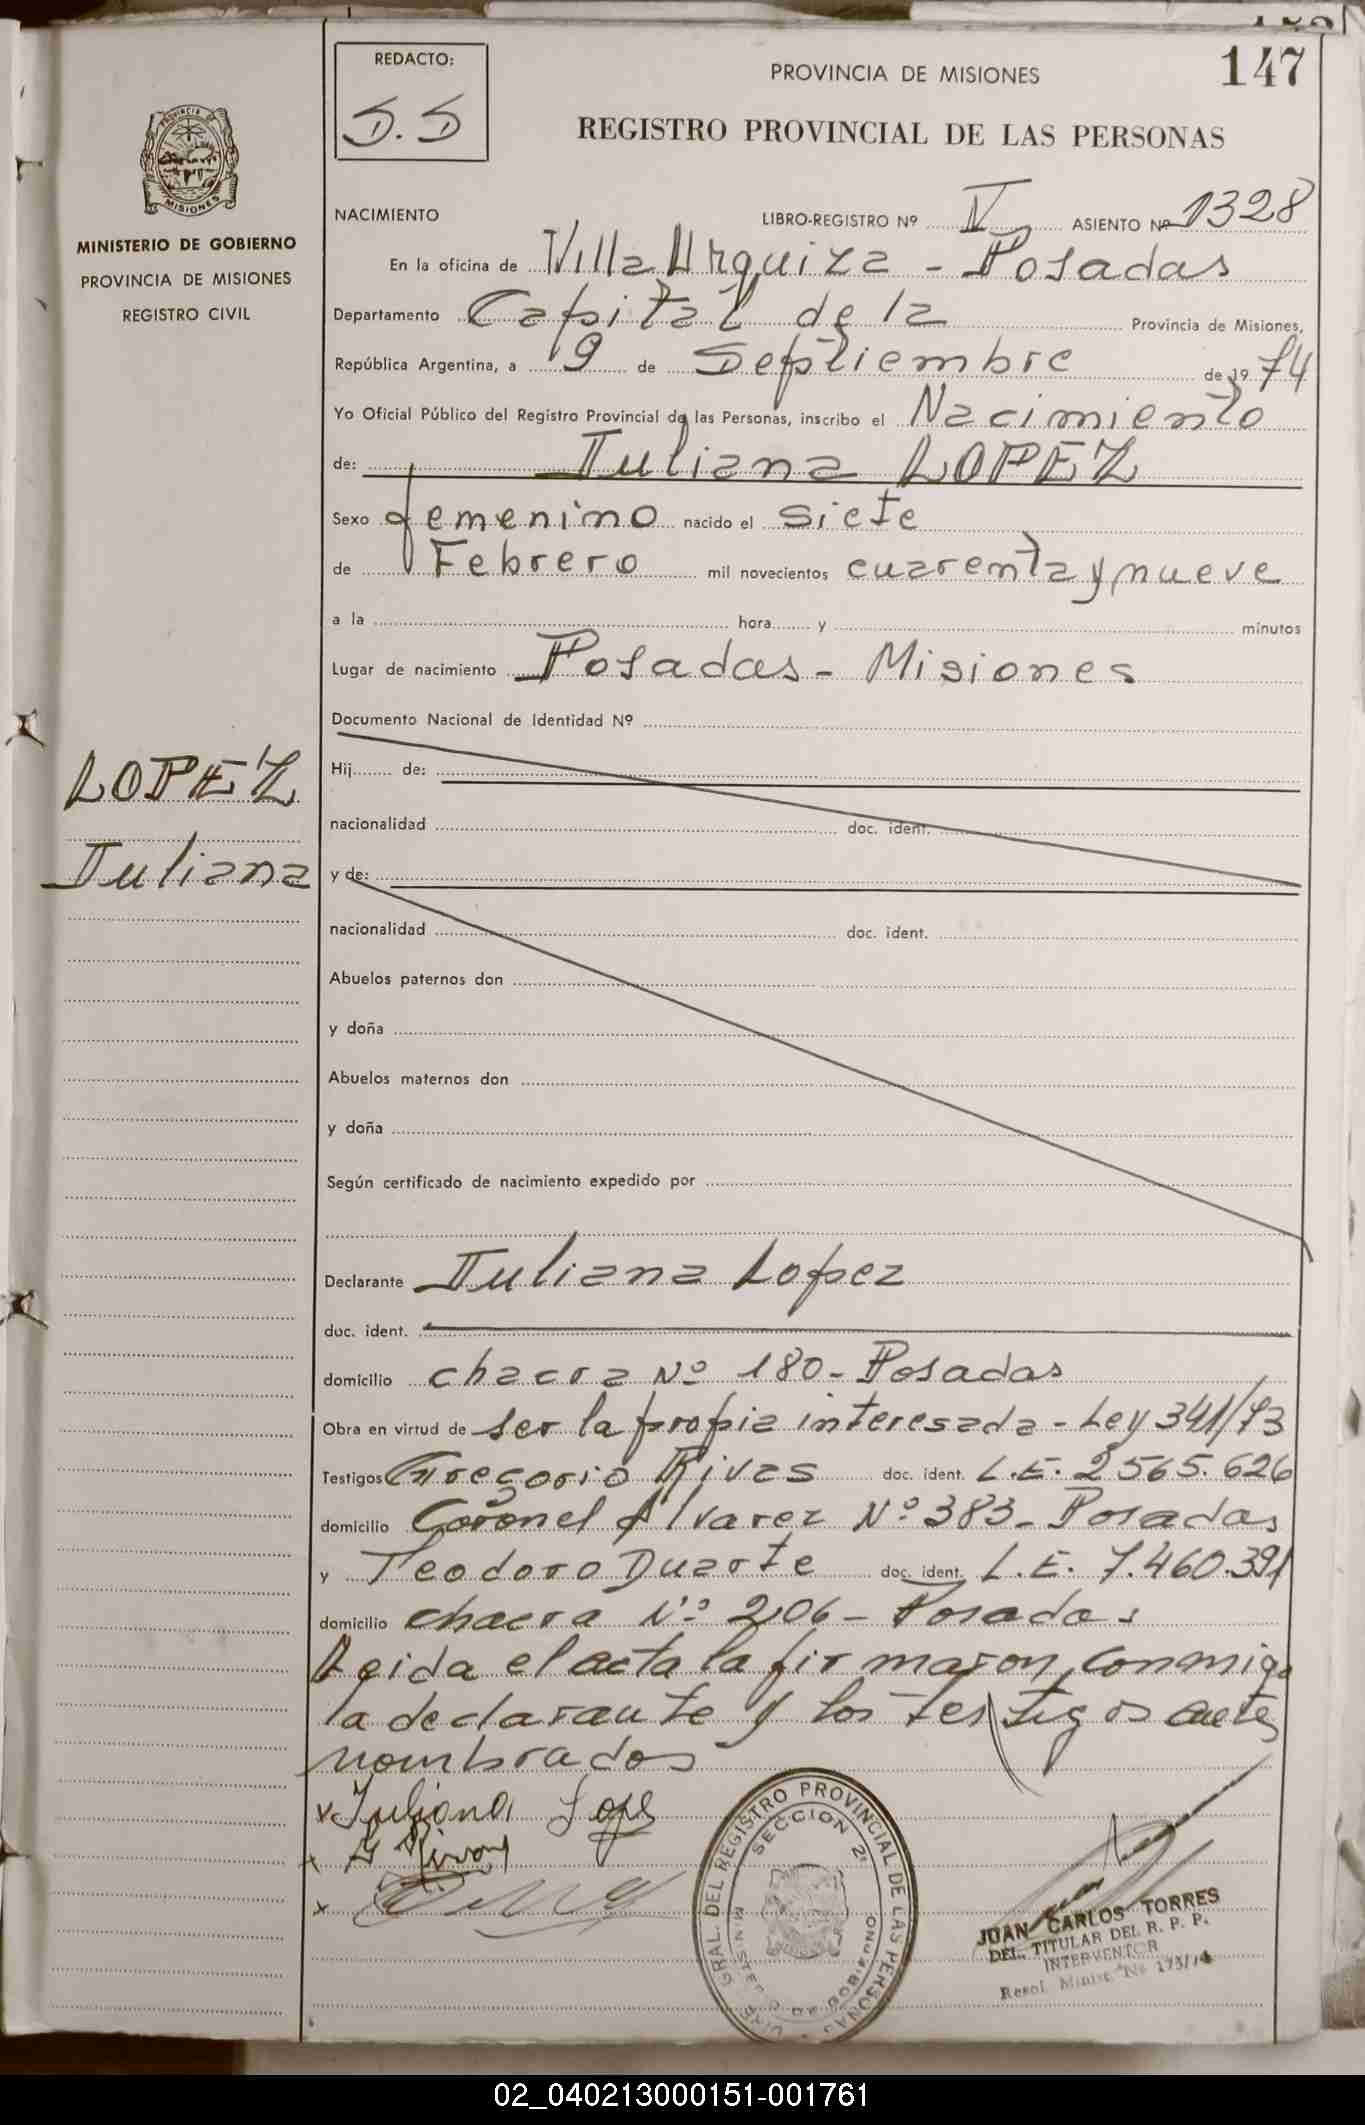 147
REDACTO:
S.S
PROVINCIA DE MISIONES
REGISTRO PROVINCIAL DE LAS PERSONAS
PROVINCIA DE
MISIONES
MINISTERIO DE GOBIERNO
PROVINCIA DE MISIONES
REGISTRO CIVIL
NACIMIENTO LIBRO-REGISTRO Nº V ASIENTO Nº 1328
En la oficina de Villa Urquiza - Posadas
Departamento Capital de la Provincia de Misiones,
República Argentina, a 19 de Septiembre de 1974
Yo Oficial Público del Registro Provincial de las Personas, inscribo el Nacimiento
de: Juliana LOPEZ
Sexo femenino nacido el siete
de Febrero mil novecientos cuarenta y nueve
a la hora y minutos
Lugar de nacimiento Posadas - Misiones
Documento Nacional de Identidad Nº
LOPEZ
Juliana
Hij de:
nacionalidad doc. ident.
y de:
nacionalidad doc. ident.
Abuelos paternos don
y doña
Abuelos maternos don
y doña
Según certificado de nacimiento expedido por
Declarante Juliana Lopez
doc. ident.
domicilio chacra Nº 180 - Posadas
Obra en virtud de ser la propia interesada - Ley 341/73
Testigos Gregorio Rivas doc. ident. L.E. 2565.626
domicilio Coronel Alvarez Nº 383 - Posadas
y Teodoro Duarte doc. ident. L.E. 7.460.391
domicilio chacra Nº 206 - Posadas
Leida el acta la firmaron conmigo
la declarante y los testigos antes
nombrados
x Juliana Lopes
x G Rivas
x
DIRE. GRAL. DEL REGISTRO PROVINCIAL DE LAS PERSONAS
SECCION 2ª
MINISTERIO DE GOBIERNO
JUAN CARLOS TORRES
DEL. TITULAR DEL R. P. P.
INTERVENTOR
Resol. Minist. Nº 173/74
02_040213000151-001761